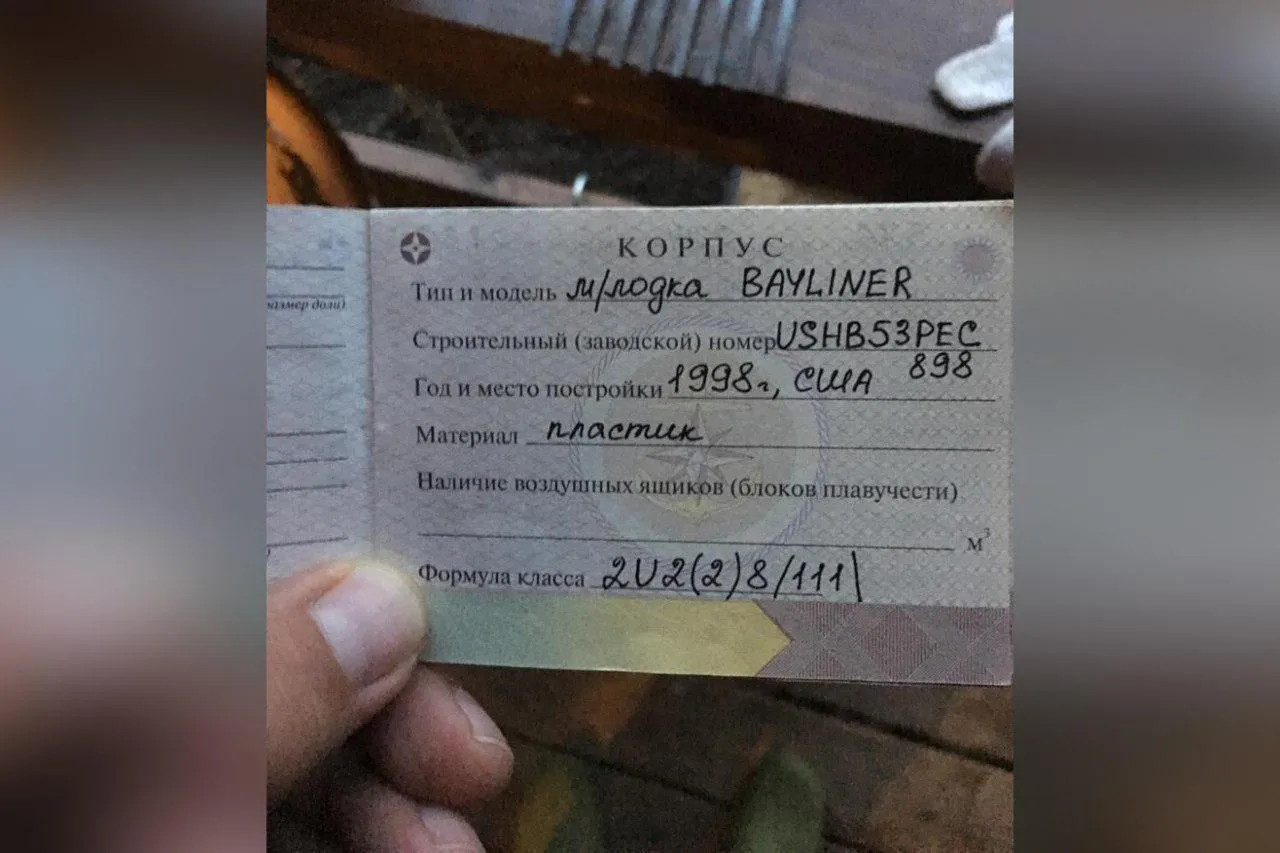 размер доли)
КОРПУС
Тип и модель м/лодка BAYLINER
Строительный (заводской) номер USHB53PEC
898
Год и место постройки 1998г, США
Материал пластик
Наличие воздушных ящиков (блоков плавучести)
м³
Формула класса 2U2(2)8/111\